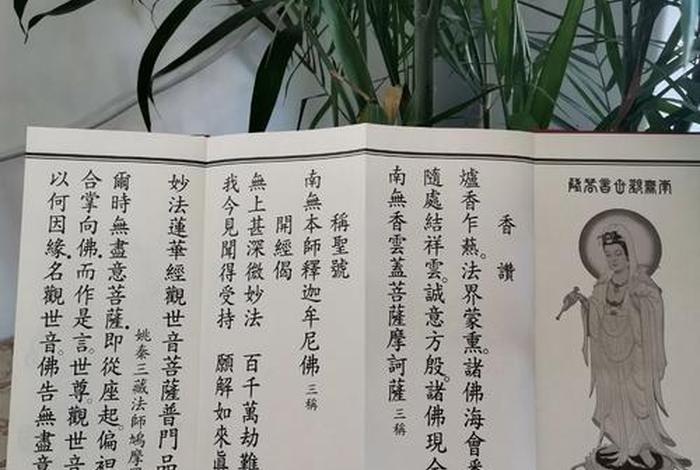 南無觀世音菩薩
香讚
爐香乍爇。法界蒙熏。諸佛海會
隨處結祥雲。誠意方殷。諸佛現全
南無香雲蓋菩薩摩訶薩 三稱
稱聖號
南無本師釋迦牟尼佛 三稱
開經偈
無上甚深微妙法 百千萬劫難
我今見聞得受持 願解如來眞
妙法蓮華經觀世音菩薩普門品
姚秦三藏法師鳩摩
爾時無盡意菩薩。即從座起。偏袒
合掌向佛。而作是言。世尊。觀世音
以何因緣。名觀世音。佛告無盡意